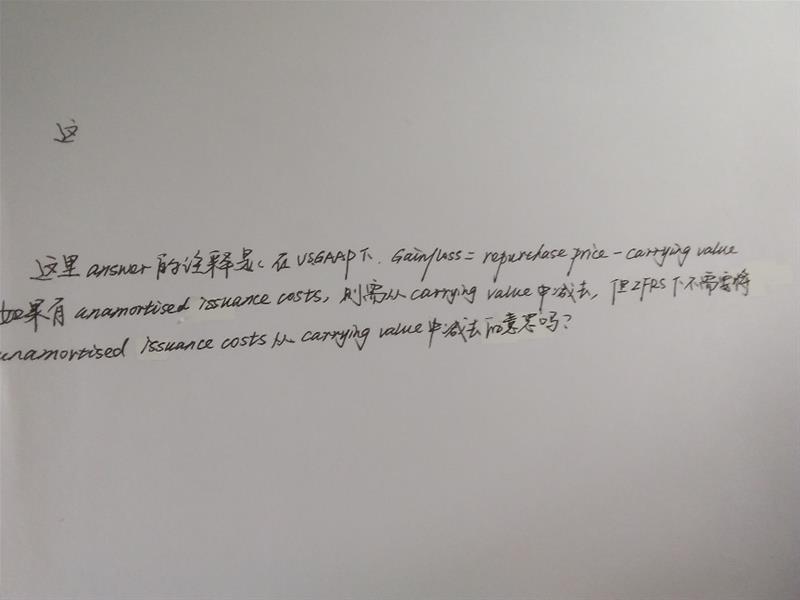 这
这里 answer 的注释是: 在 USGAAP下. Gain/loss = repurchase price - carrying value
如果有 unamortised issuance costs, 则需从 carrying value 中减去, 但IFRS下不需要将
unamortised issuance costs 从 carrying value 中减去的意思吗?